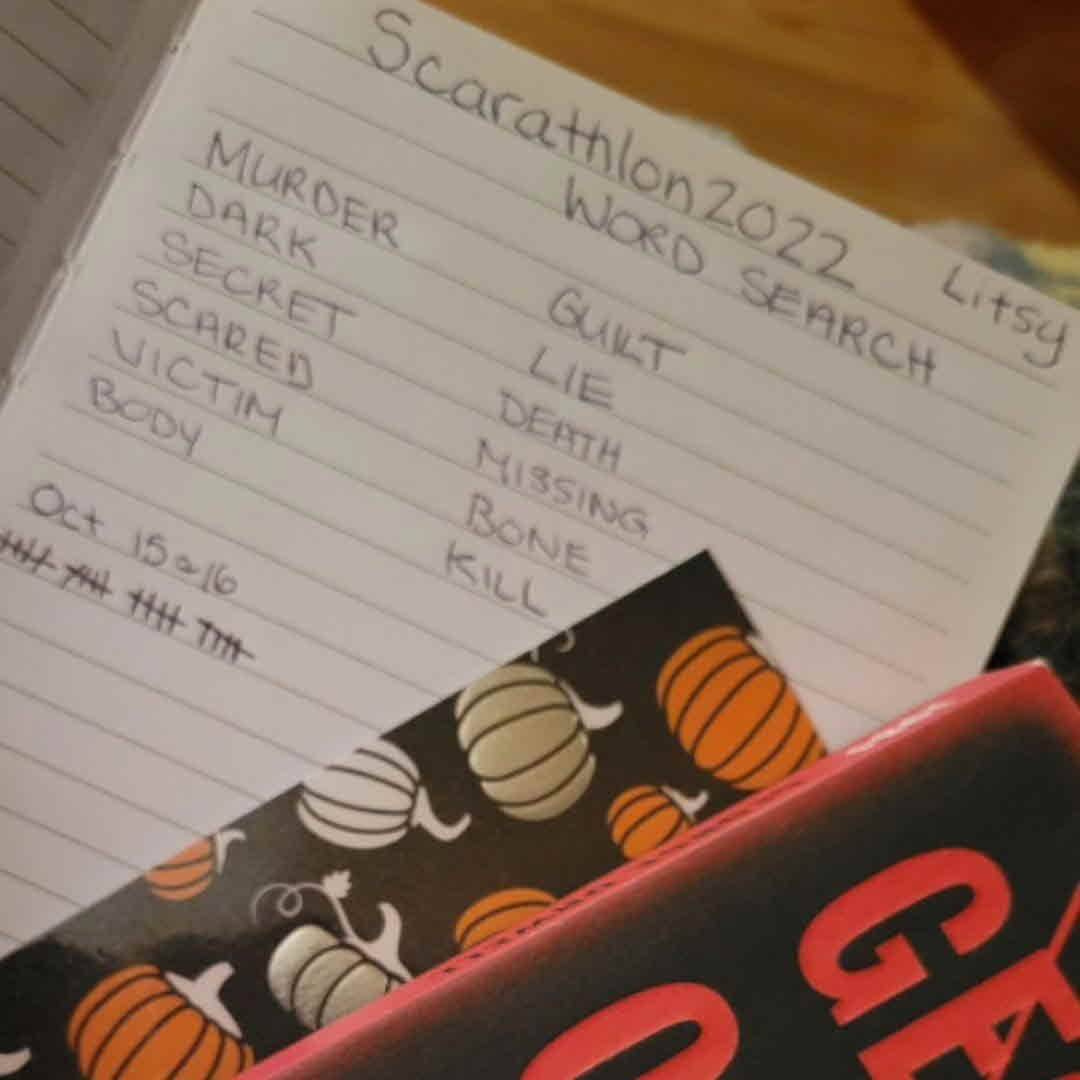 Scarathlon 2022
WORD SEARCH Litsy
MURDER
DARK
SECRET
SCARED
VICTIM
BODY
GUILT
LIE
DEATH
MISSING
BONE
KILL
Oct 15 & 16